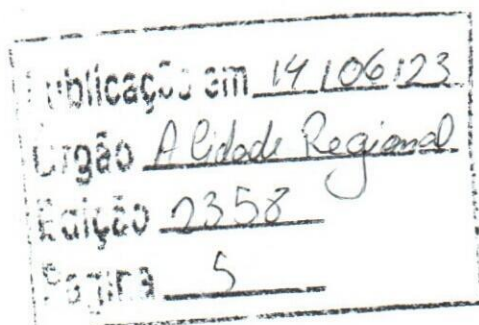 Publicação em 14/06/23
Órgão A Cidade Regional
Edição 2358
Página 5